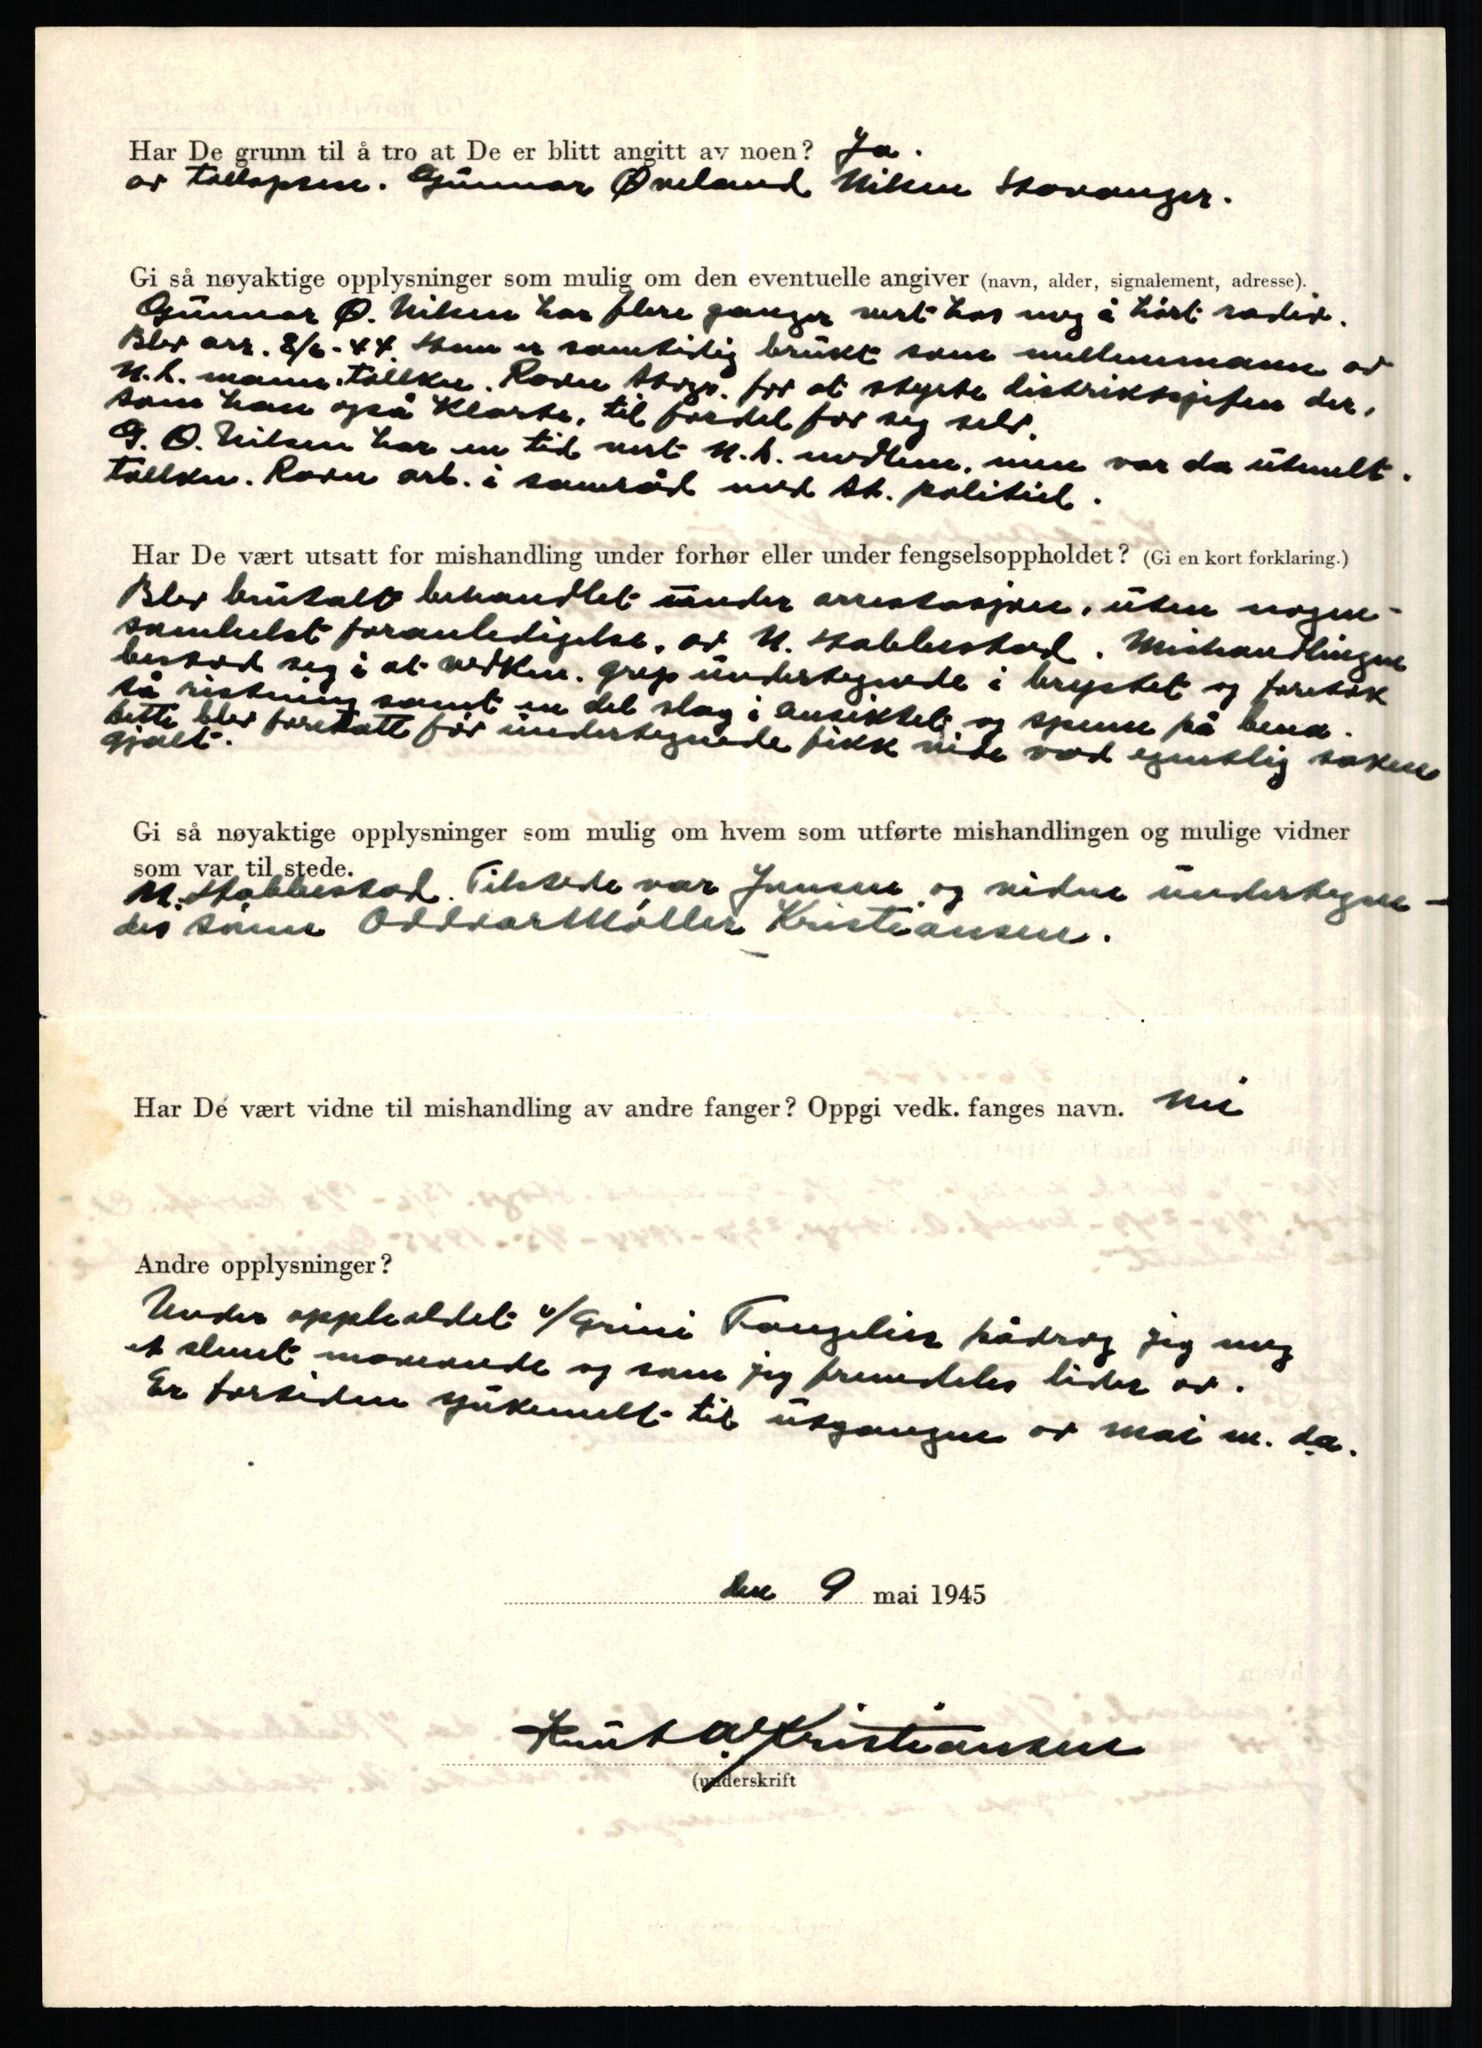 Har De grunn til å tro at De er blitt angitt av noen? Ja.
av tollopsm. Gunnar Øveland Nilsen Stavanger.
Gi så nøyaktige opplysninger som mulig om den eventuelle angiver (navn, alder, signalement, adresse).
Gunnar Ø. Nilsen har flere ganger vert hos meg å hørt radio.
Blev arr. 8/6-44. Han er samtidig brukt som mellemmann av
N.S. mann tollkn. Ravn Stvgr. for at styrte distriktssjefen der,
som han også klarte, til fordel for seg selv.
G. Ø. Nilsen har en tid vert N.S. medlem, men var da utmelt.
Tollkn. Ravn arb. i samråd med St. politiet.
Har De vært utsatt for mishandling under forhør eller under fengselsoppholdet? (Gi en kort forklaring.)
Blev brutalt behandlet under arrestasjon, uten nogen-
somhelst foranledigelse, av N. Stabbestad. Mishandlingen
bestod seg i at vedkm. grep undertegnede i brystet og foretok
så ristning samt en del slag i ansiktet og spenn på bena.
Dette blev foretatt før undertegnede fikk vide vad egentlig saken
gjalt.
Gi så nøyaktige opplysninger som mulig om hvem som utførte mishandlingen og mulige vidner
som var til stede.
N. Stabbestad. Tilstede var Jensen og vidne undertegne-
des sønn Oddvar Møller Kristiansen.
Har De vært vidne til mishandling av andre fanger? Oppgi vedk. fanges navn. Nei
Andre opplysninger?
Under oppholdet v/Grini Fangeleir pådrog jeg meg
et slemt maveonde og som jeg fremdeles lider av.
Er fortiden sjukemelt til utgangen av mai m. da.
den 9 mai 1945
Knut Kristiansen
(underskrift